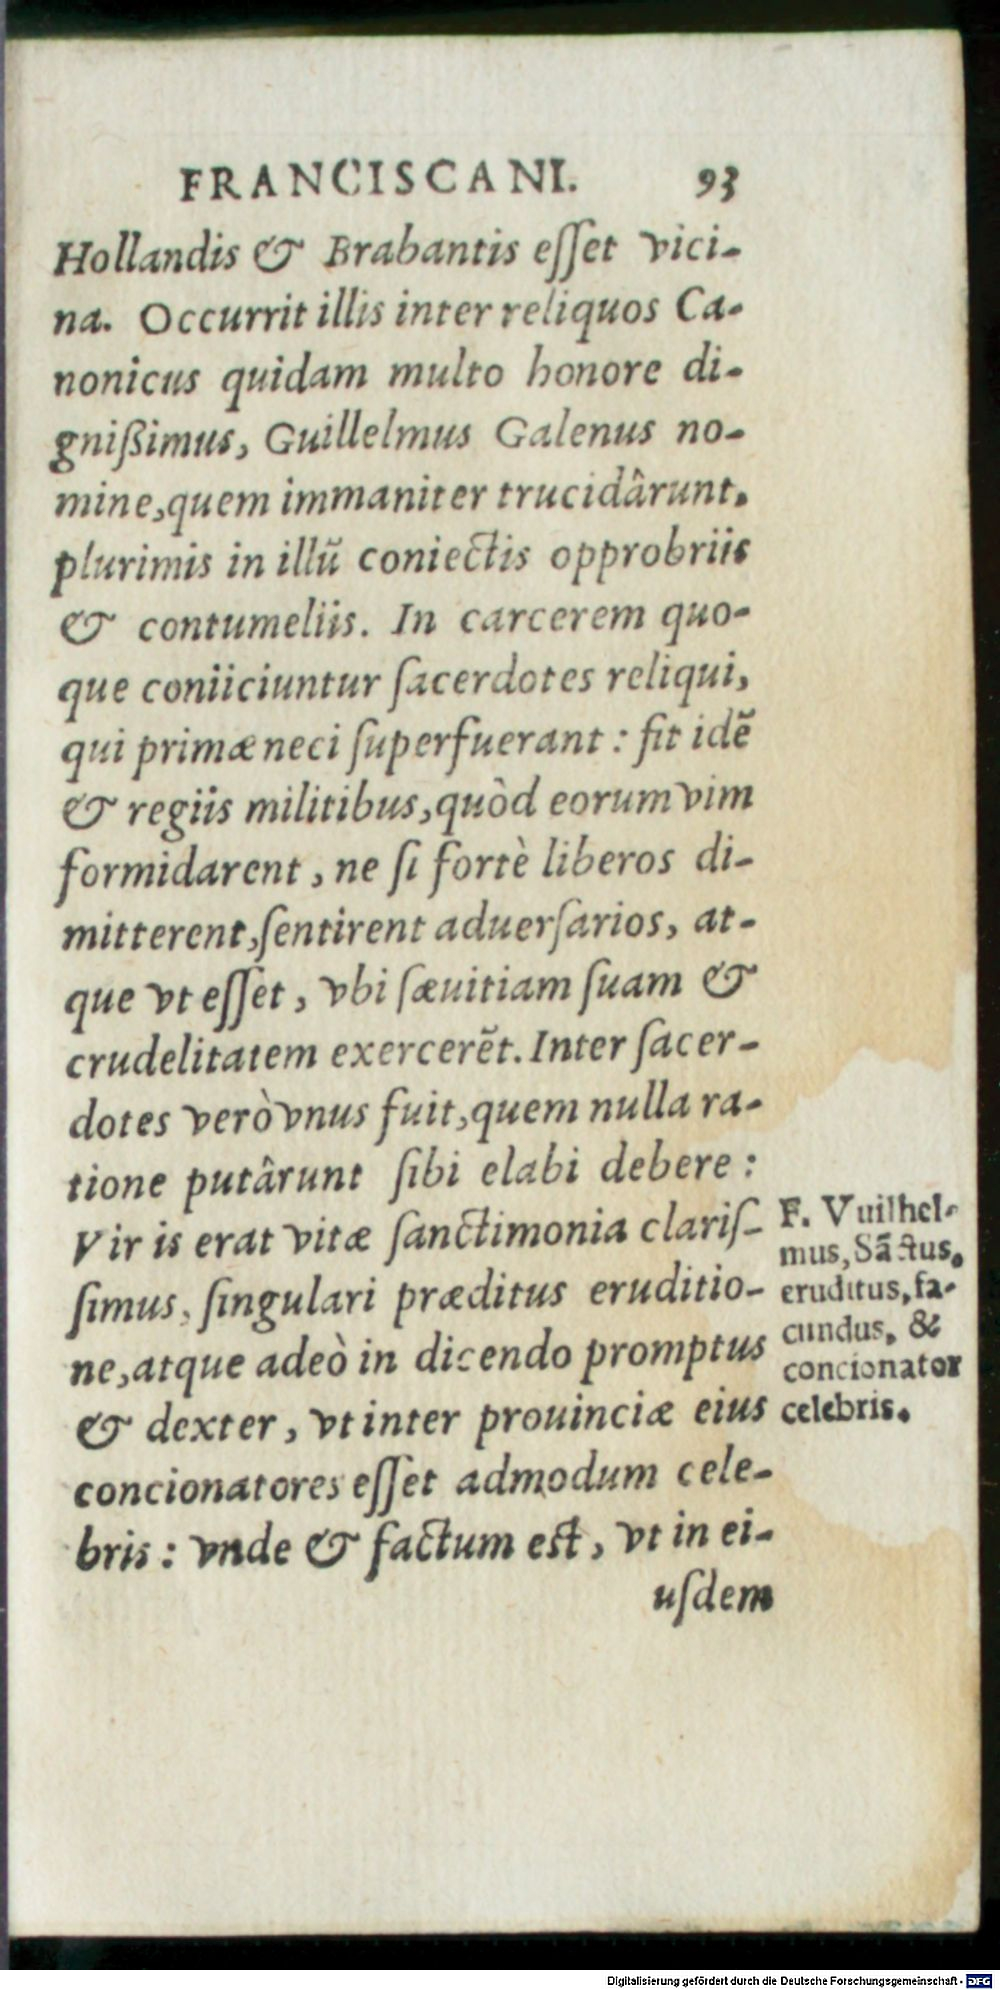 FRANCISCANI. 93
Hollandis & Brabantis eſſet vici-
na. Occurrit illis inter reliquos Ca-
nonicus quidam multo honore di-
gnißimus, Guillelmus Galenus no-
mine,quem immaniter trucidârunt.
plurimis in illũ coniectis opprobriis
& contumeliis. In carcerem quo-
que coniiciuntur ſacerdotes reliqui,
qui primæ neci ſuperfuerant : fit idẽ
& regiis militibus,quòd eorum vim
formidarent, ne ſi fortè liberos di-
mitterent,ſentirent aduerſarios, at-
que vt eſſet, vbi ſæuitiam ſuam &
crudelitatem exercerẽt. Inter ſacer-
dotes verò vnus fuit,quem nulla ra-
tione putârunt ſibi elabi debere :
Vir is erat vitæ ſanctimonia clariſ-
ſimus, ſingulari præditus eruditio-
ne,atque adeò in dicendo promptus
& dexter, vt inter prouinciæ eius
concionatores eſſet admodum cele-
bris : vnde & factum est, vt in ei-
uſdem
F. Vuilhel-
mus, Sãctus,
eruditus, fa-
cundus, &
concionator
celebris.
Digitalisierung gefördert durch die Deutsche Forschungsgemeinschaft - DFG